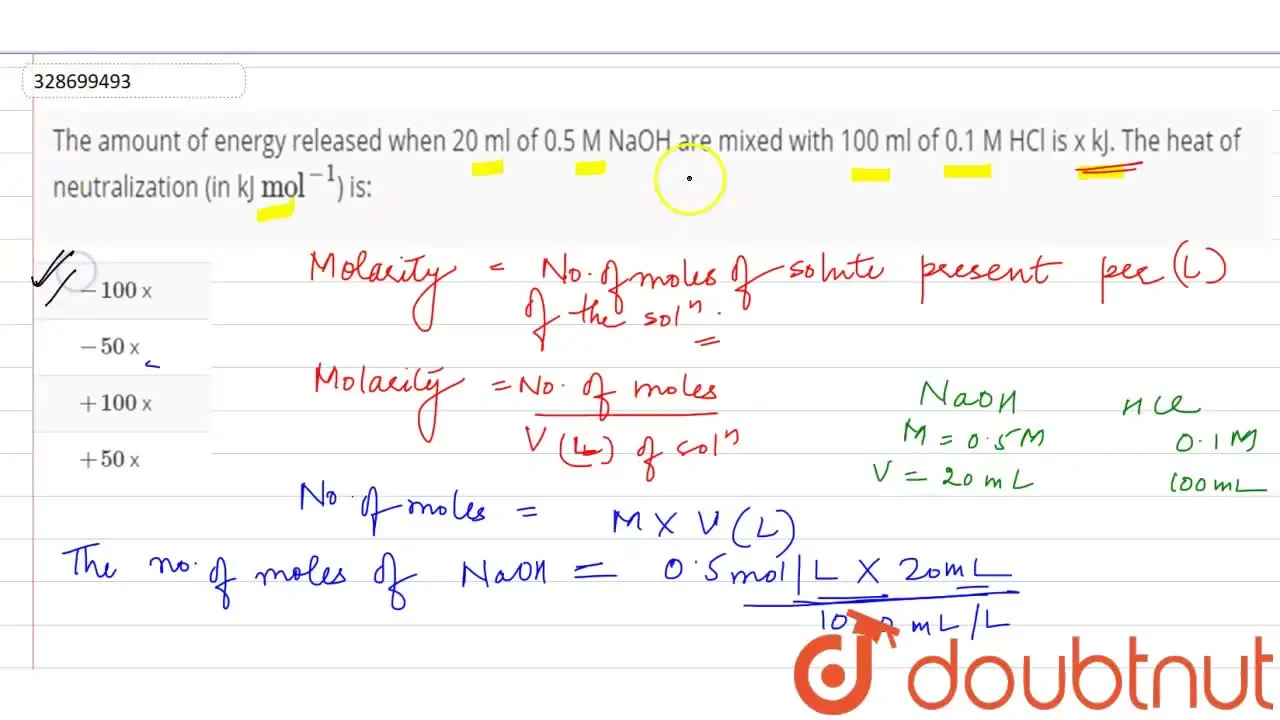 328699493
The amount of energy released when 20 ml of 0.5 M NaOH are mixed with 100 ml of 0.1 M HCl is x kJ. The heat of
neutralization (in kJ mol⁻¹) is:
−100 x
−50 x
+100 x
+50 x
Molarity = No. of moles of solute present per (L)
of the solⁿ.
Molarity = No. of moles
V (L) of solⁿ
NaOH HCl
M = 0.5M 0.1M
V = 20 mL 100mL
No. of moles = M X V (L)
The no. of moles of NaOH = 0.5 mol/L X 20mL
mL/L
doubtnut